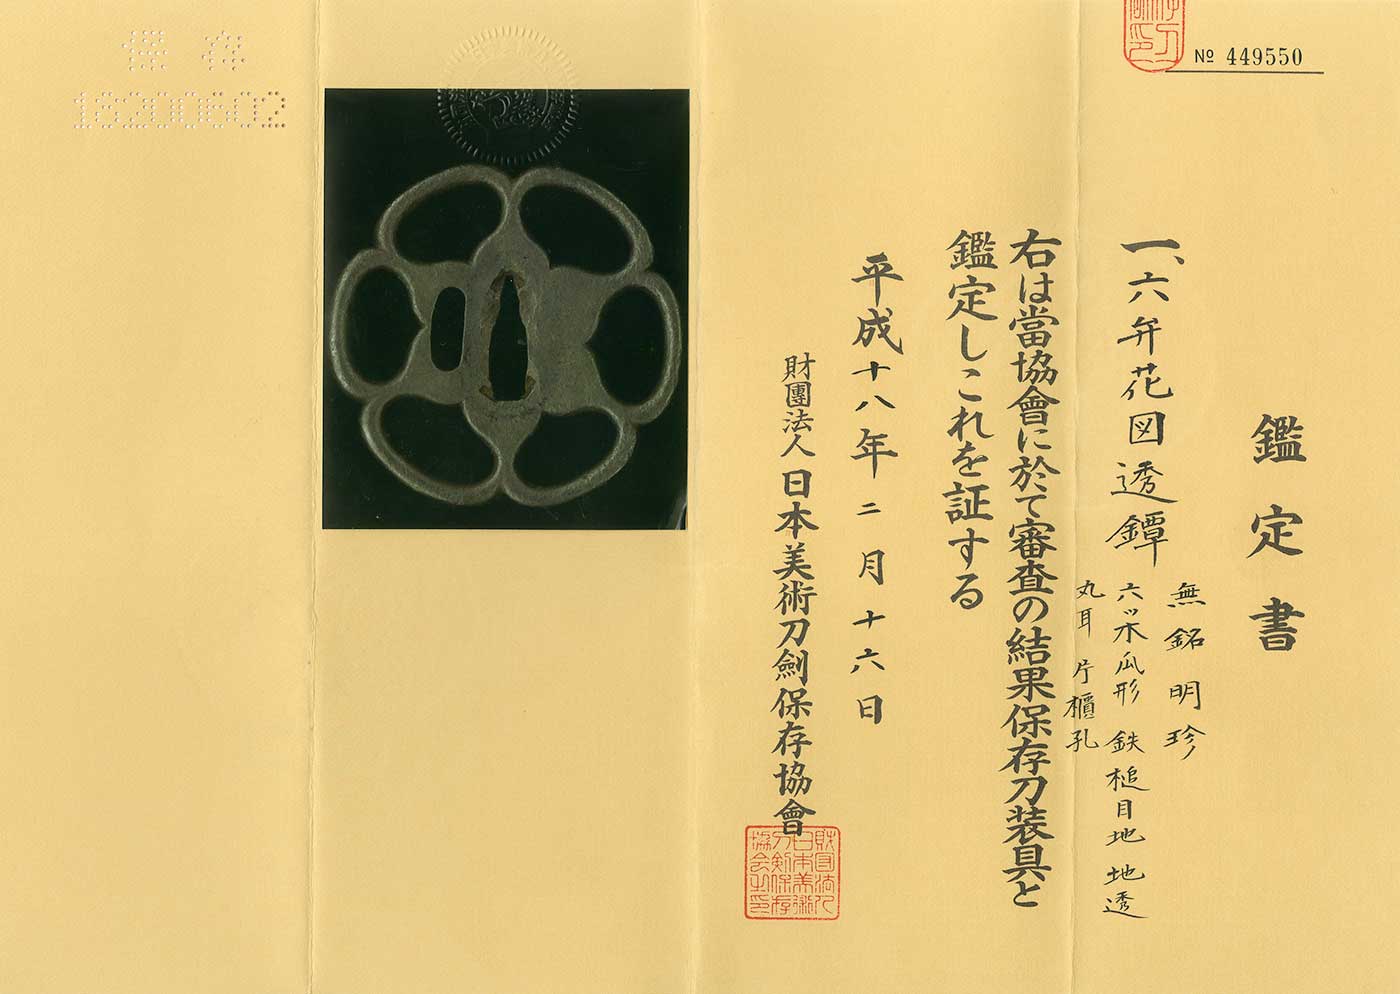 № 449550
鑑定書
一、六弁花図透鐔
無銘明珍
六ッ木瓜形 鉄槌目地 地透
丸耳 片櫃孔
右は當協會に於て審査の結果保存刀装具と
鑑定しこれを証する
平成十八年二月十六日
財團法人 日本美術刀劍保存協會
財団法人
日本美術
刀剣保存
協会之印
保存
18200602